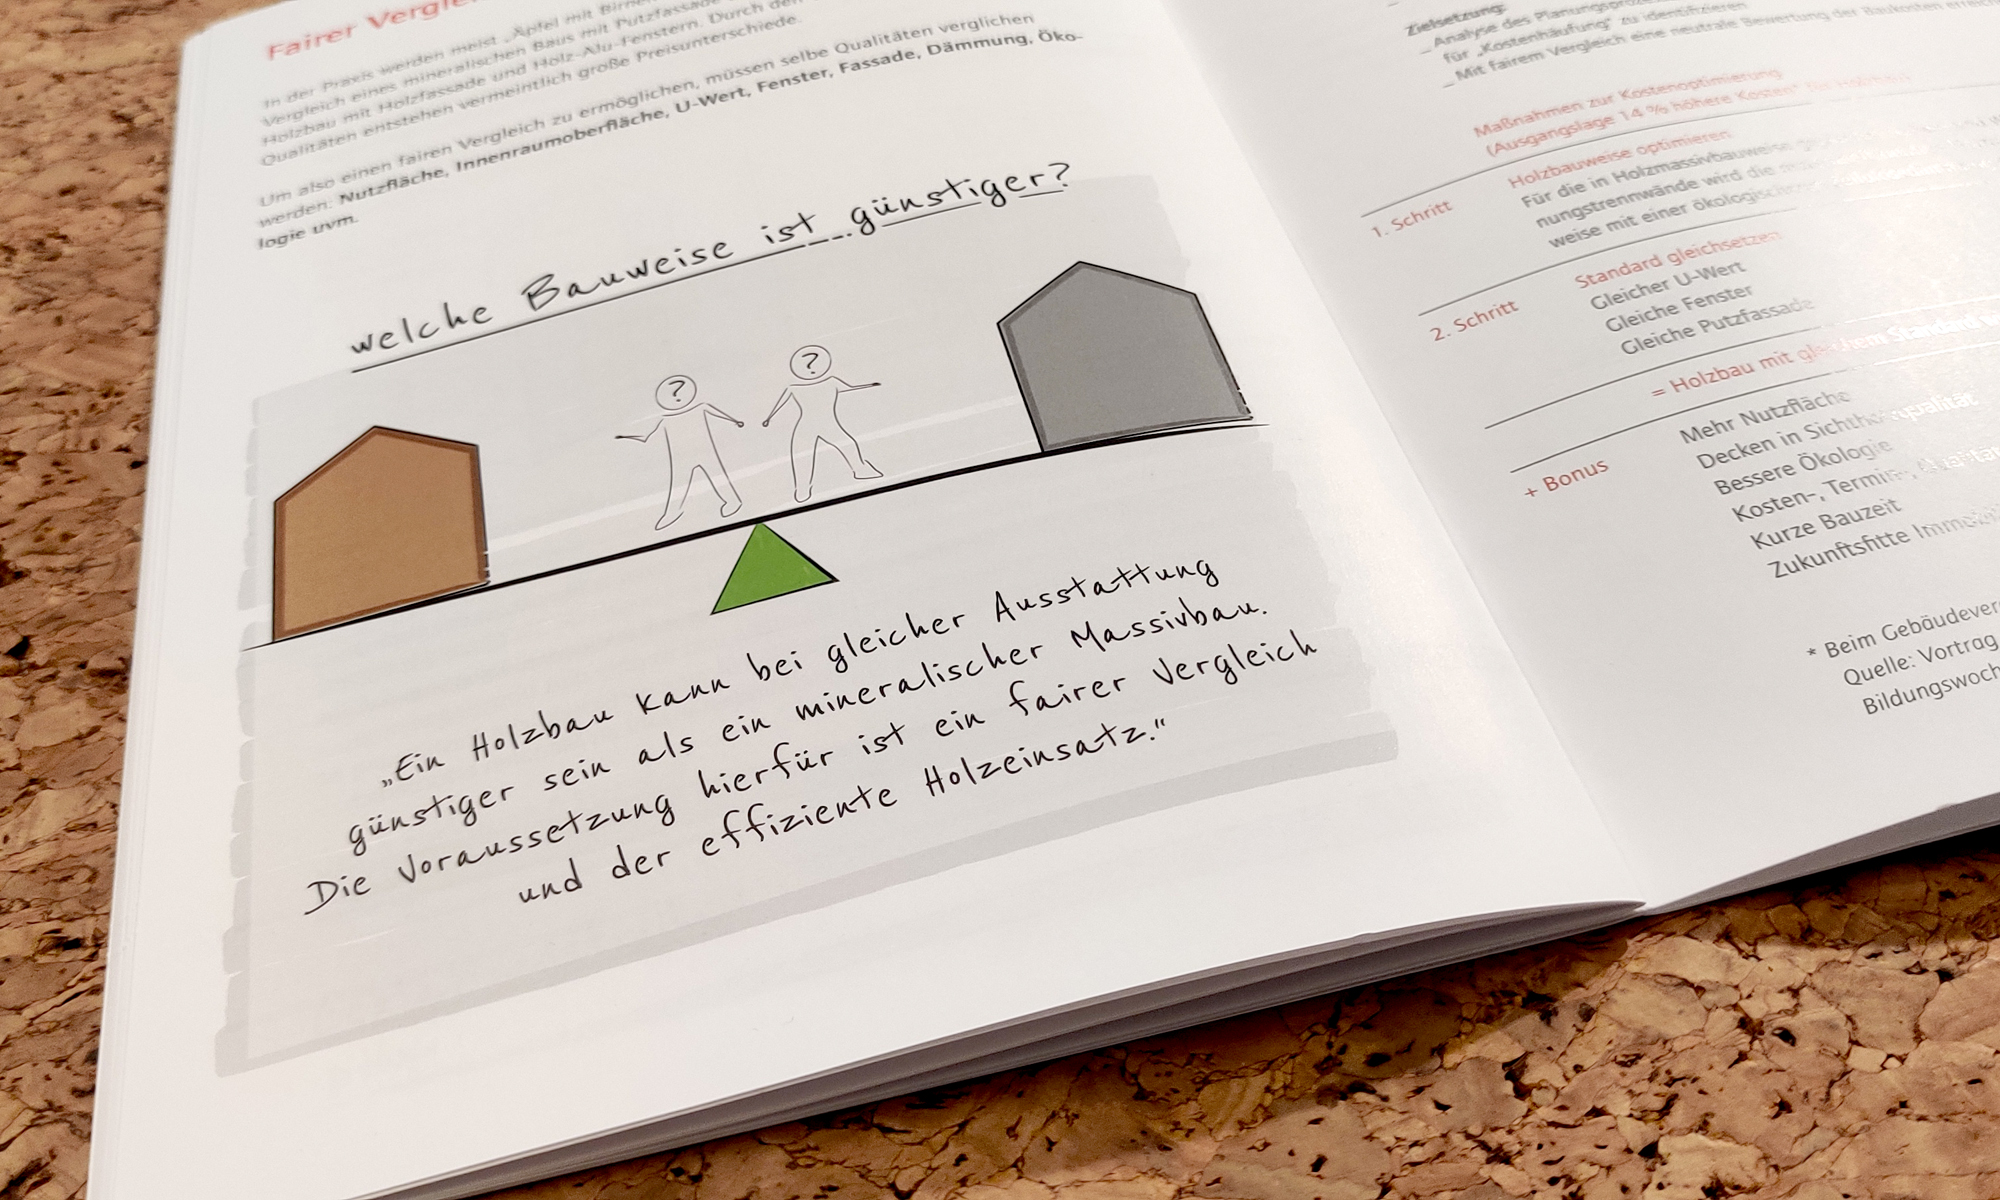 Fairer Vergle
In der Praxis werden meist „Äpfel mit Birnen
Vergleich eines mineralischen Baus mit Putzfassade
Holzbau mit Holzfassade und Holz-Alu-Fenstern. Durch den
Qualitäten entstehen vermeintlich große Preisunterschiede.
Um also einen fairen Vergleich zu ermöglichen, müssen selbe Qualitäten verglichen
werden: Nutzfläche, Innenraumoberfläche, U-Wert, Fenster, Fassade, Dämmung, Öko-
logie uvm.
welche Bauweise ist günstiger?
? ?
„Ein Holzbau kann bei gleicher Ausstattung
günstiger sein als ein mineralischer Massivbau.
Die Voraussetzung hierfür ist ein fairer Vergleich
und der effiziente Holzeinsatz.“
Zielsetzung:
_ Analyse des Planungsproze
für „Kostenhäufung“ zu identifizieren
_ Mit fairem Vergleich eine neutrale Bewertung der Baukosten
Maßnahmen zur Kostenoptimierung
(Ausgangslage 14 % höhere Kosten* für
Holzbauweise optimieren
1. Schritt Für die in Holzmassivbauweise
nungstrennwände wird die
weise mit einer ökologischen
Standard gleichsetzen
2. Schritt Gleicher U-Wert
Gleiche Fenster
Gleiche Putzfassade
= Holzbau mit gleichem Standard
Mehr Nutzfläche
+ Bonus Decken in Sichtholzqualität
Bessere Ökologie
Kosten-, Termin-,
Kurze Bauzeit
Zukunftsfitte Immobi
* Beim Gebäudever
Quelle: Vortrag
Bildungswoch